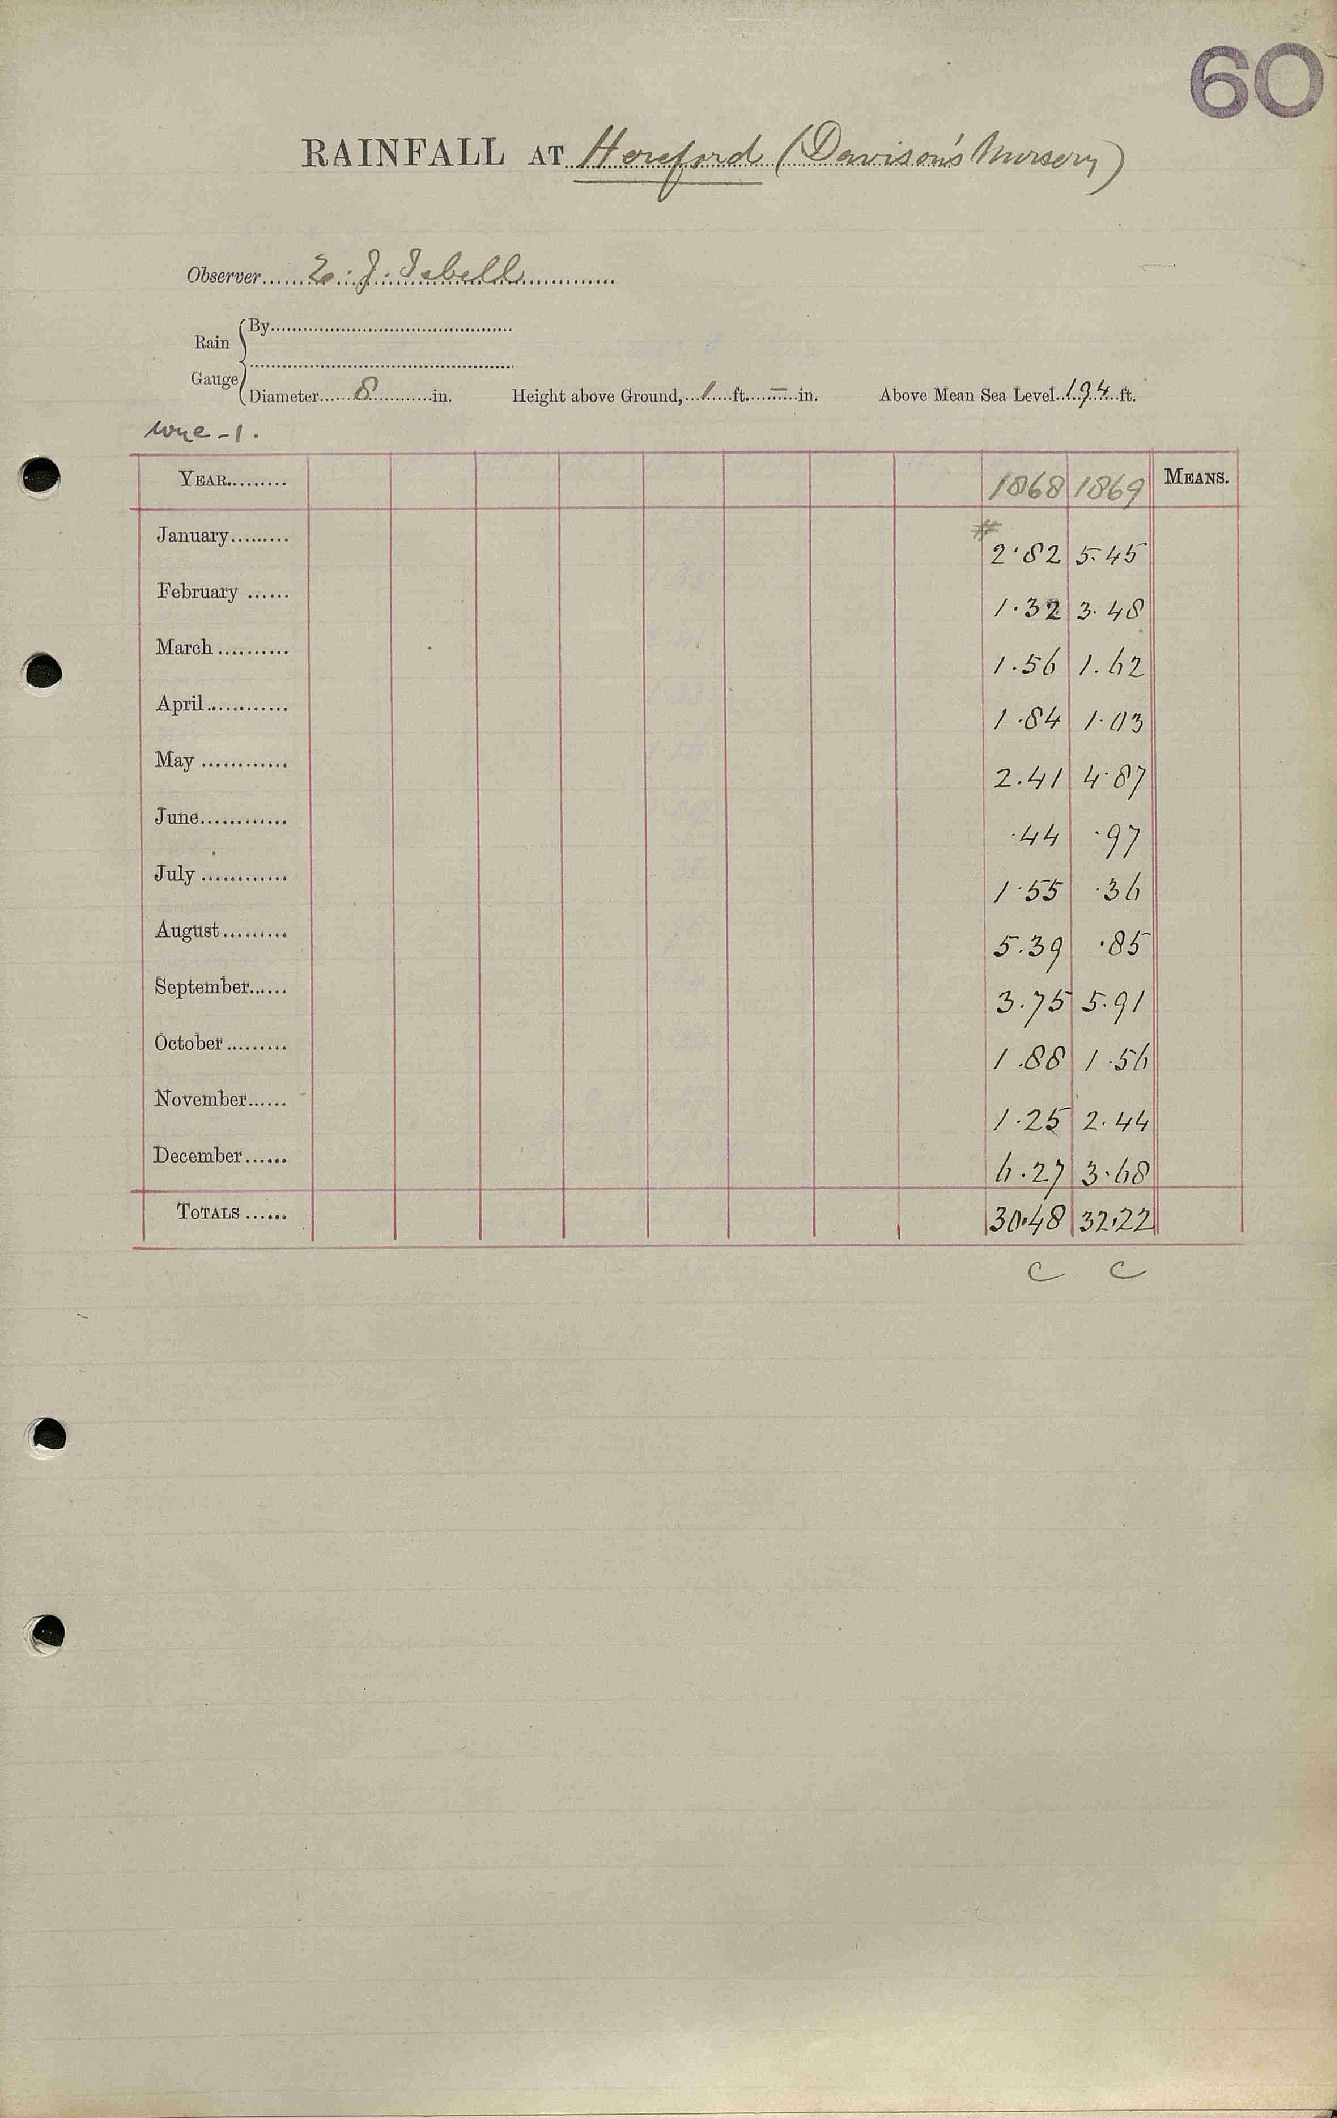 60
RAINFALL AT Hereford (Davison's Nursery)
Observer......E. J. Isbell..................
Rain Gauge { By..............................
..............................
Diameter......8............in. Height above Ground,...1.....ft.....–....in. Above Mean Sea Level..194..ft.
Wye - 1.
YEAR......... 1868 1869 MEANS.
January......... # 2.82 5.45
February ...... 1.32 3.48
March .......... 1.56 1.62
April............ 1.84 1.03
May ............ 2.41 4.87
June............ .44 .97
July ............ 1.55 .36
August ......... 5.39 .85
September...... 3.75 5.91
October ......... 1.88 1.56
November...... 1.25 2.44
December ...... 6.27 3.68
TOTALS ...... 30.48 32.22
C C